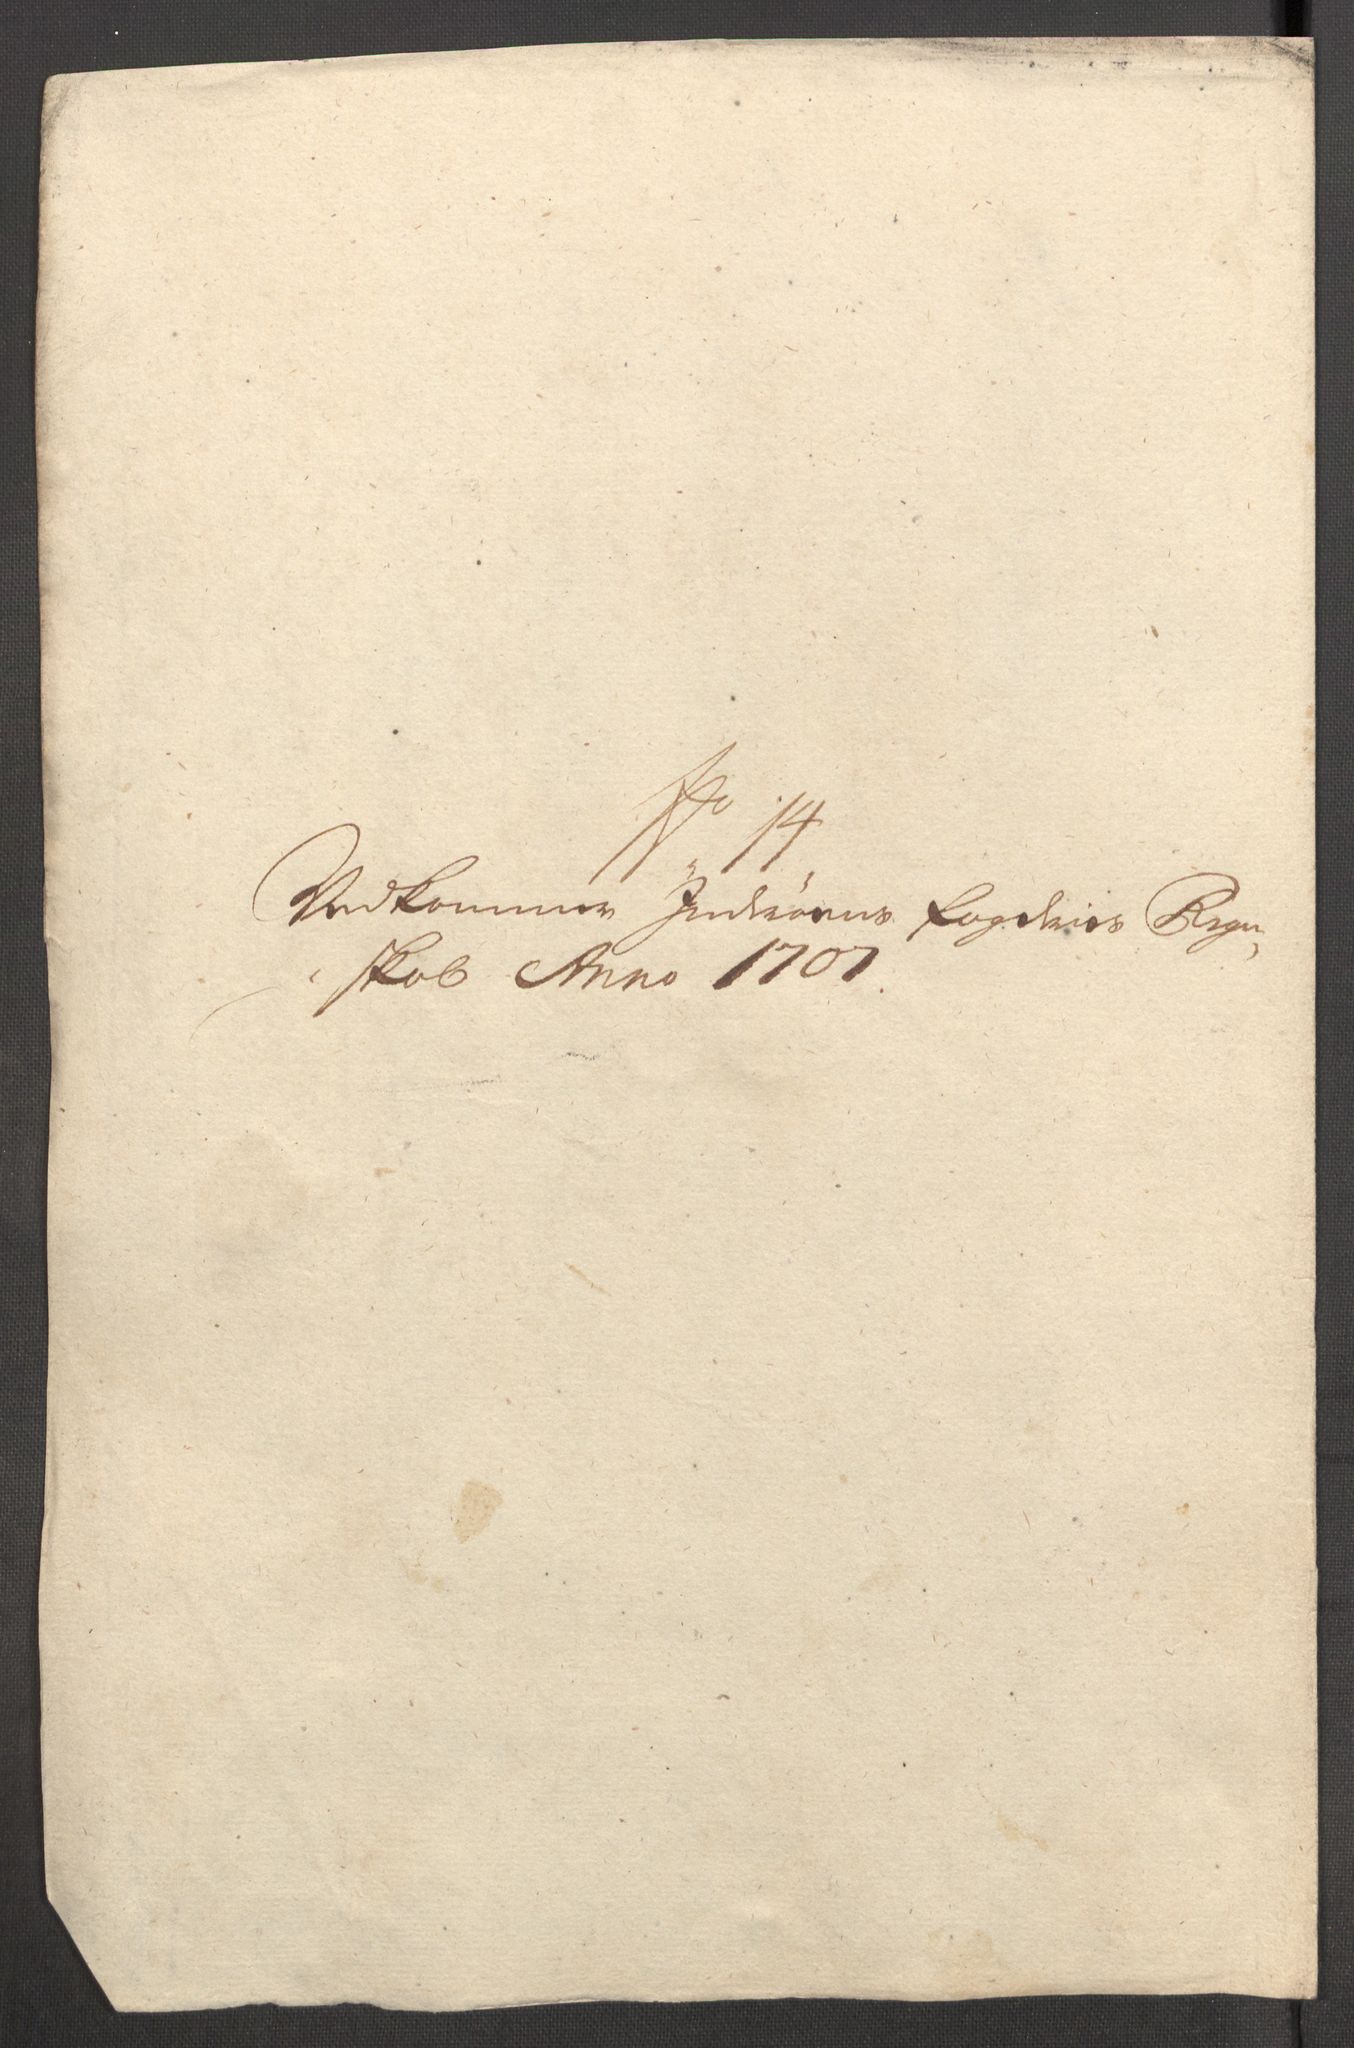 No 14
Vedkommer Inderöens fogderies Regn,
skab Anno 1707.